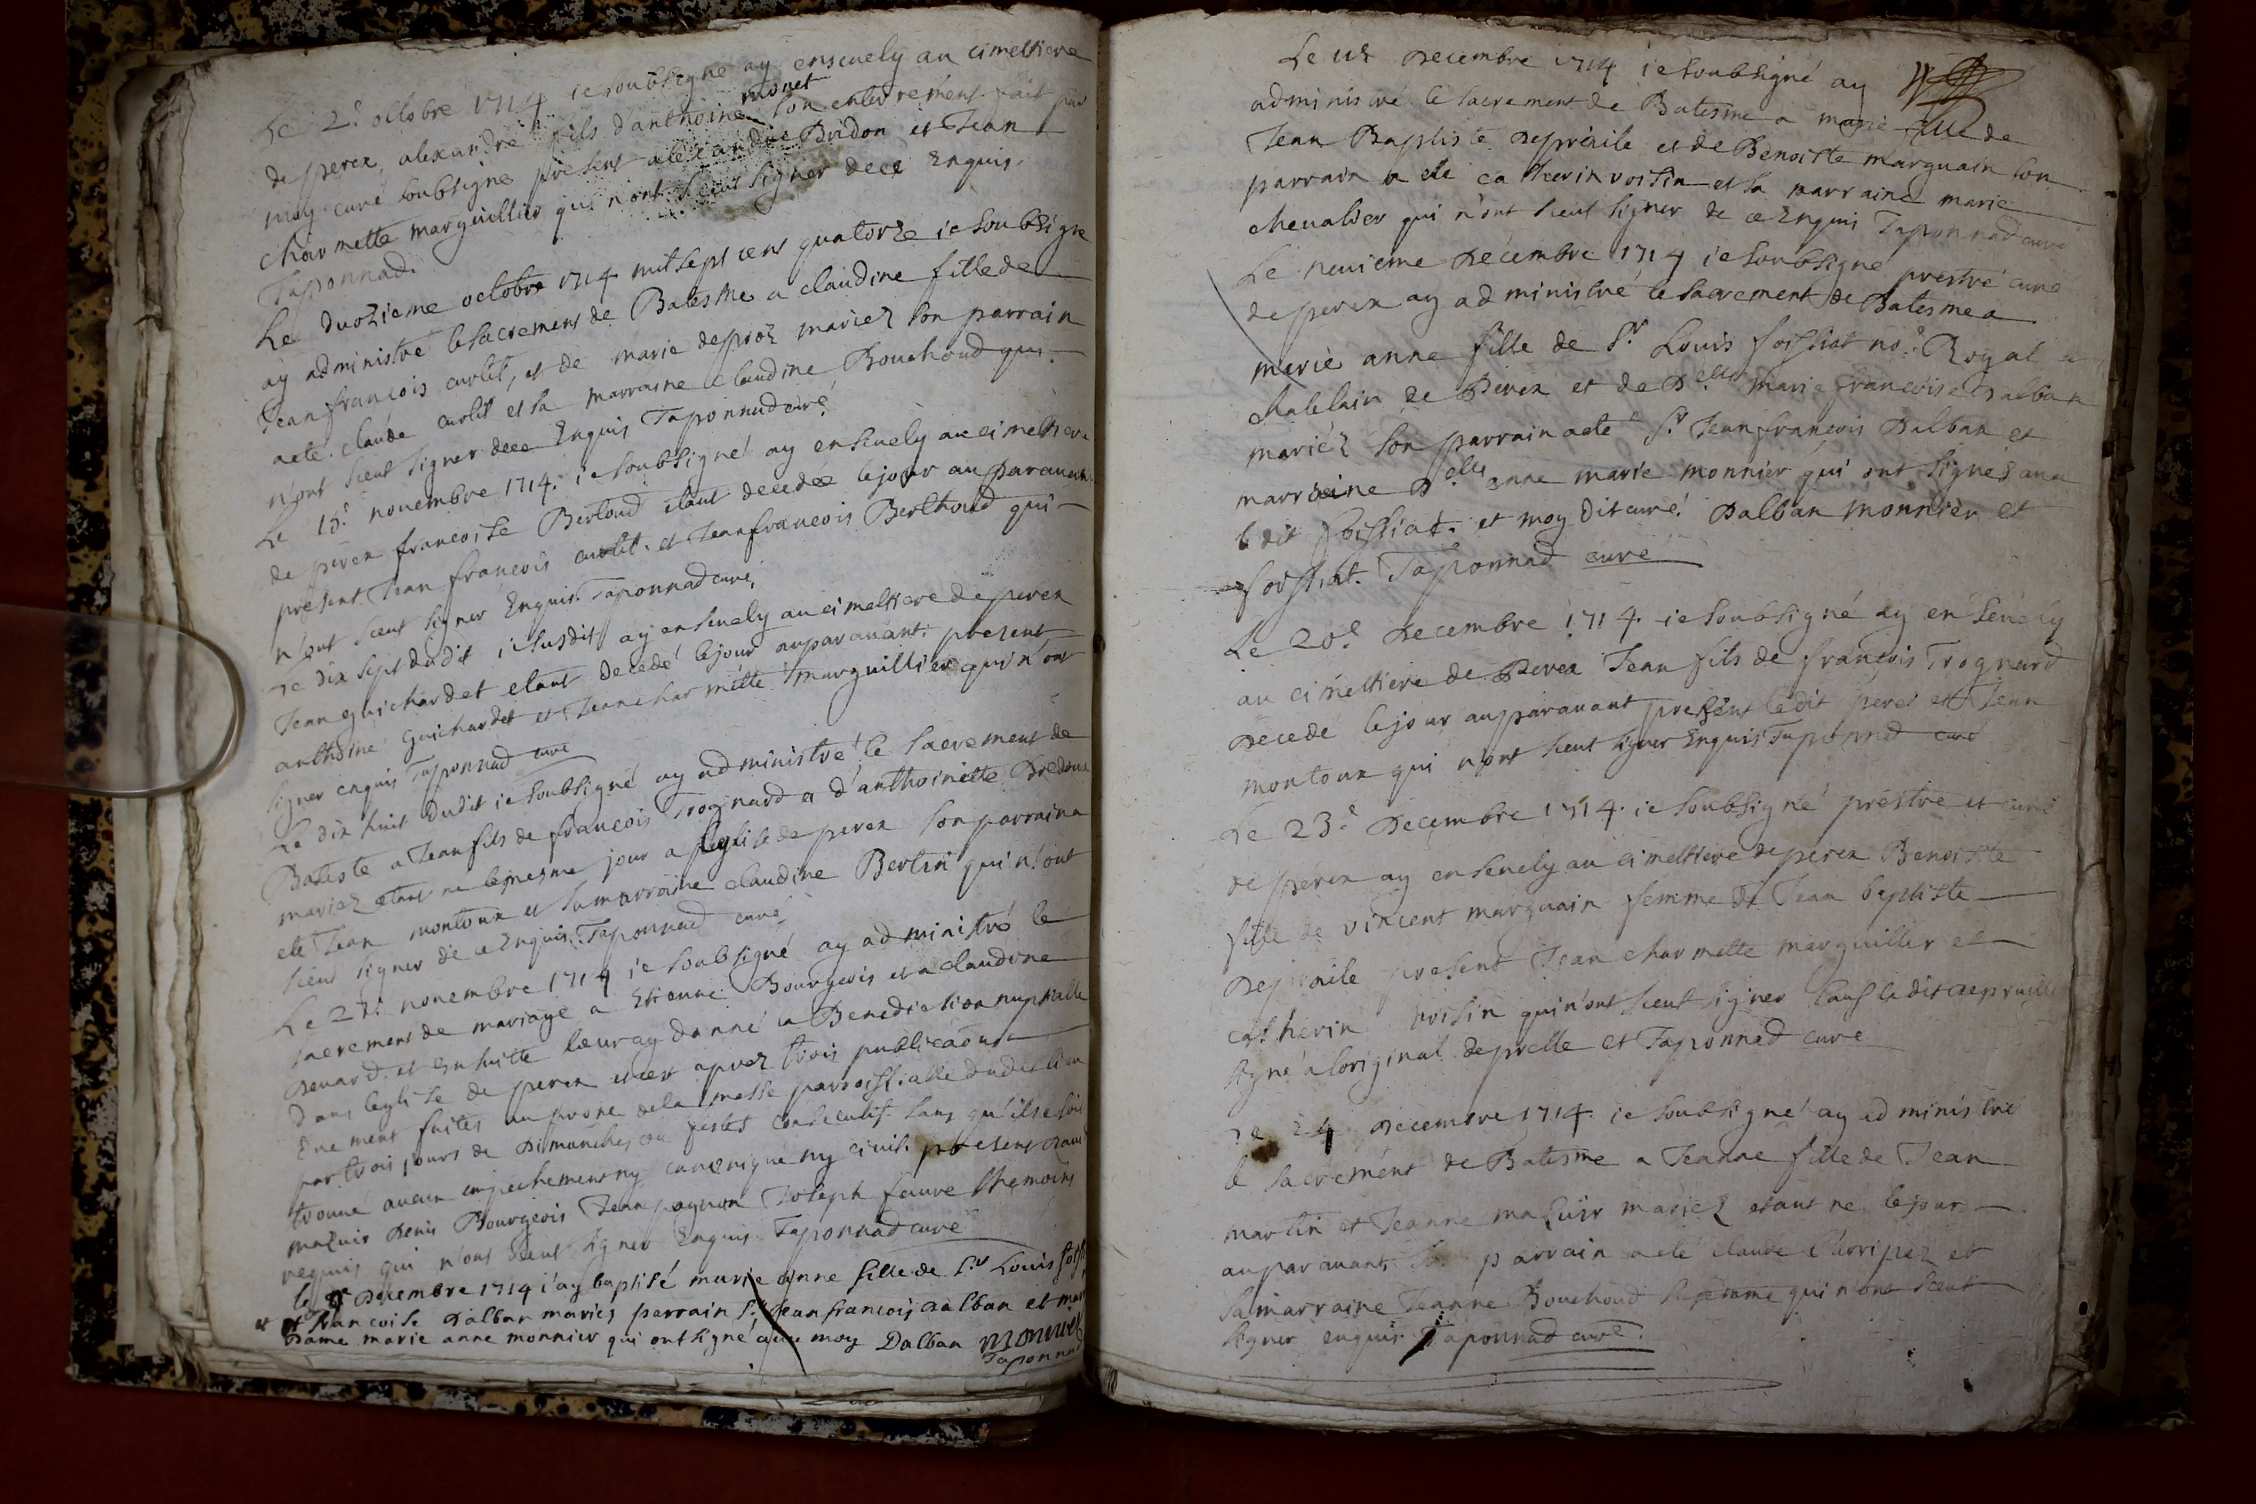 Le 2e octobre 1714 ie soubsigné ay enseuely au cimettiere
de perex alexandre fils d'anthoine monet son enterrement fait par
moy curé soubsigné present alexandre Bridon et Jean
charmette marguillier qui n'ont sceut signer dece Enquis
Taponnad.
Le duozieme octobre 1714 mil sept cens quatorze ie soubsigné
ay administré le sacrement de Batesme a claudine fille de
Jean françois curlit, et de marie desproz mariez son parrain
aeté claude curlit et sa marraine claudine Bouchoud qui
n'ont sceut signer dece Enquis Taponnad curé
Le 15e nouembre 1714. ie soubsigné ay enseuely au cimettiere
de perex francoise Bertoud etant decedée le jour au parauant
present Jean francois curlit et Jean francois Berthoud qui
n'ont sceut signer Enquis Taponnad curé.
Le dix sept dudit ie susdit ay enseuely au cimettiere de perex
Jean guichardet etant decedé le jour auparauant present
anthoine guichardet et Jean charmette marguillier qui n'ont
signer enquis Taponnad curé
Le dix huit dudit ie soubsigné ay administré le sacrement de
Bateste a Jean fils de françois Trognard et d'anthoinette
mariez etant ne le mesme jour a l'eglise de perex son parrain a
eté Jean montoux et sa marraine claudine Bertin qui n'ont
sceut signer de ce Enquis Taponnad curé
Le 27e nouembre 1714 ie soubsigné ay administré le
sacrement de mariage a Etienne Bourgeois et a claudine
Denard et Ensuitte leur ay donné la Benediction nuptialle
dans leglise de perex et cet aprez trois publicaons
Enement faites au prone de la messe parroissialle dudit lieu
par trois jours de Dimanches ou festes consecutif sans qu'il se soit
trouué aucun empechement ny canonique ny ciuil presens Dauid
mazuir Denis Bourgeois Jean pagnon Joseph faure thémoins
requis qui n'ont sceut signer Enquis Taponnad curé
le Decembre 1714 i'ay baptisé marie anne fille de Sr Louis
et francoise Dalban mariés parrain Sr Jean francois dalban et mar
Dame marie anne monnier qui ont signé auec moy Dalban monnier
Taponnad
Le Decembre 1714 ie soubsigné ay
administré le sacrement de Batesme a marie fille de
Jean Baptiste Depraile et de Benoiste marguain son
parrain a eté catherin voisin et sa marraine marie
cheualier qui n'ont sceut signer de ce Enquis Taponnad curé
Le neuieme Decembre 1714 ie soubsigné prestre curé
de perex ay administré le sacrement de Batesme a
marie anne fille de Sr Louis foissiat nore Royal
chatelain de Perex et de Delle marie francoise Dalban
mariéz son parrain aeté Sr Jean francois Dalban et
marraine Delle anne marie monnier qui ont signés auec
le dit foissiat. et moy Dit curé Dalban monnier et
foissiat. Taponnad curé
Le 20e Decembre 1714. ie soubsigné ay enseuely
au cimettiere de Perex Jean fils de françois Trognard
Decedé le jour auparauant present le dit pere et Jean
montoux qui n'ont sceut signer Enquis Taponnad curé
Le 23e Decembre 1714. ie soubsigné prestre et curé
de perex ay enseuely au cimettiere de perex Benoiste
fille de vincent marguain femme de Jean baptiste
Depraile present Jean charmette marguillier et
catherin voisin qui n'ont sceut signer sauf le dit depraile
signé a loriginal deprelle et Taponnad curé
Le 24 Decembre 1714. ie soubsigné ay administré
le sacrement de Batesme a Jeanne fille de Jean
martin et Jeanne mazuir mariez etant ne le jour
auparauant parrain aeté claude Carripez et
sa marraine Jeanne Bouchoud sa femme qui n'ont sceut
signer enquis Taponnad curé.